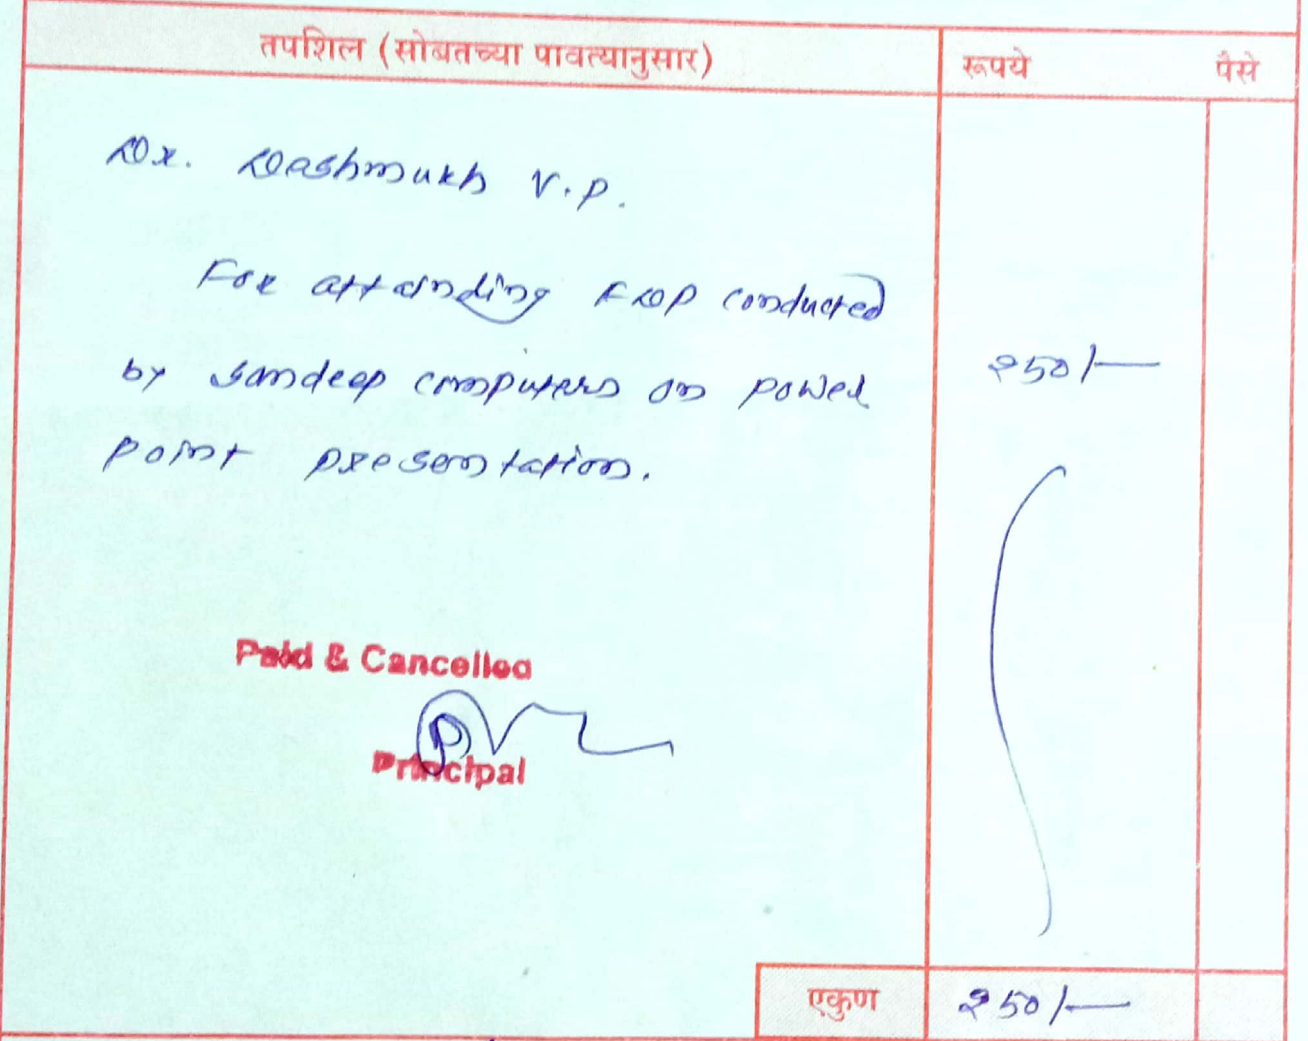 तपशिल (सोबतच्या पावत्यानुसार) रूपये पैसे
Dr. Deshmukh V.P.
For attending FDP conducted
by Sandeep computers on power 250/-
point presentation.
Paid & Cancelled
Principal
एकुण 250/-